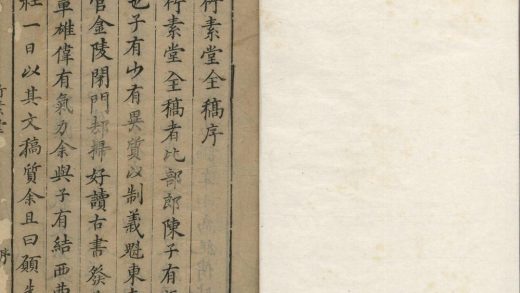 行素堂全稿序
行素堂全稿者比部郎陳子有
也子有少有異質以制義魁東
官金陵閉門却掃好讀古書發
章雄偉有氣力余與子有結西曹
社一日以其文稿質余且曰願
序